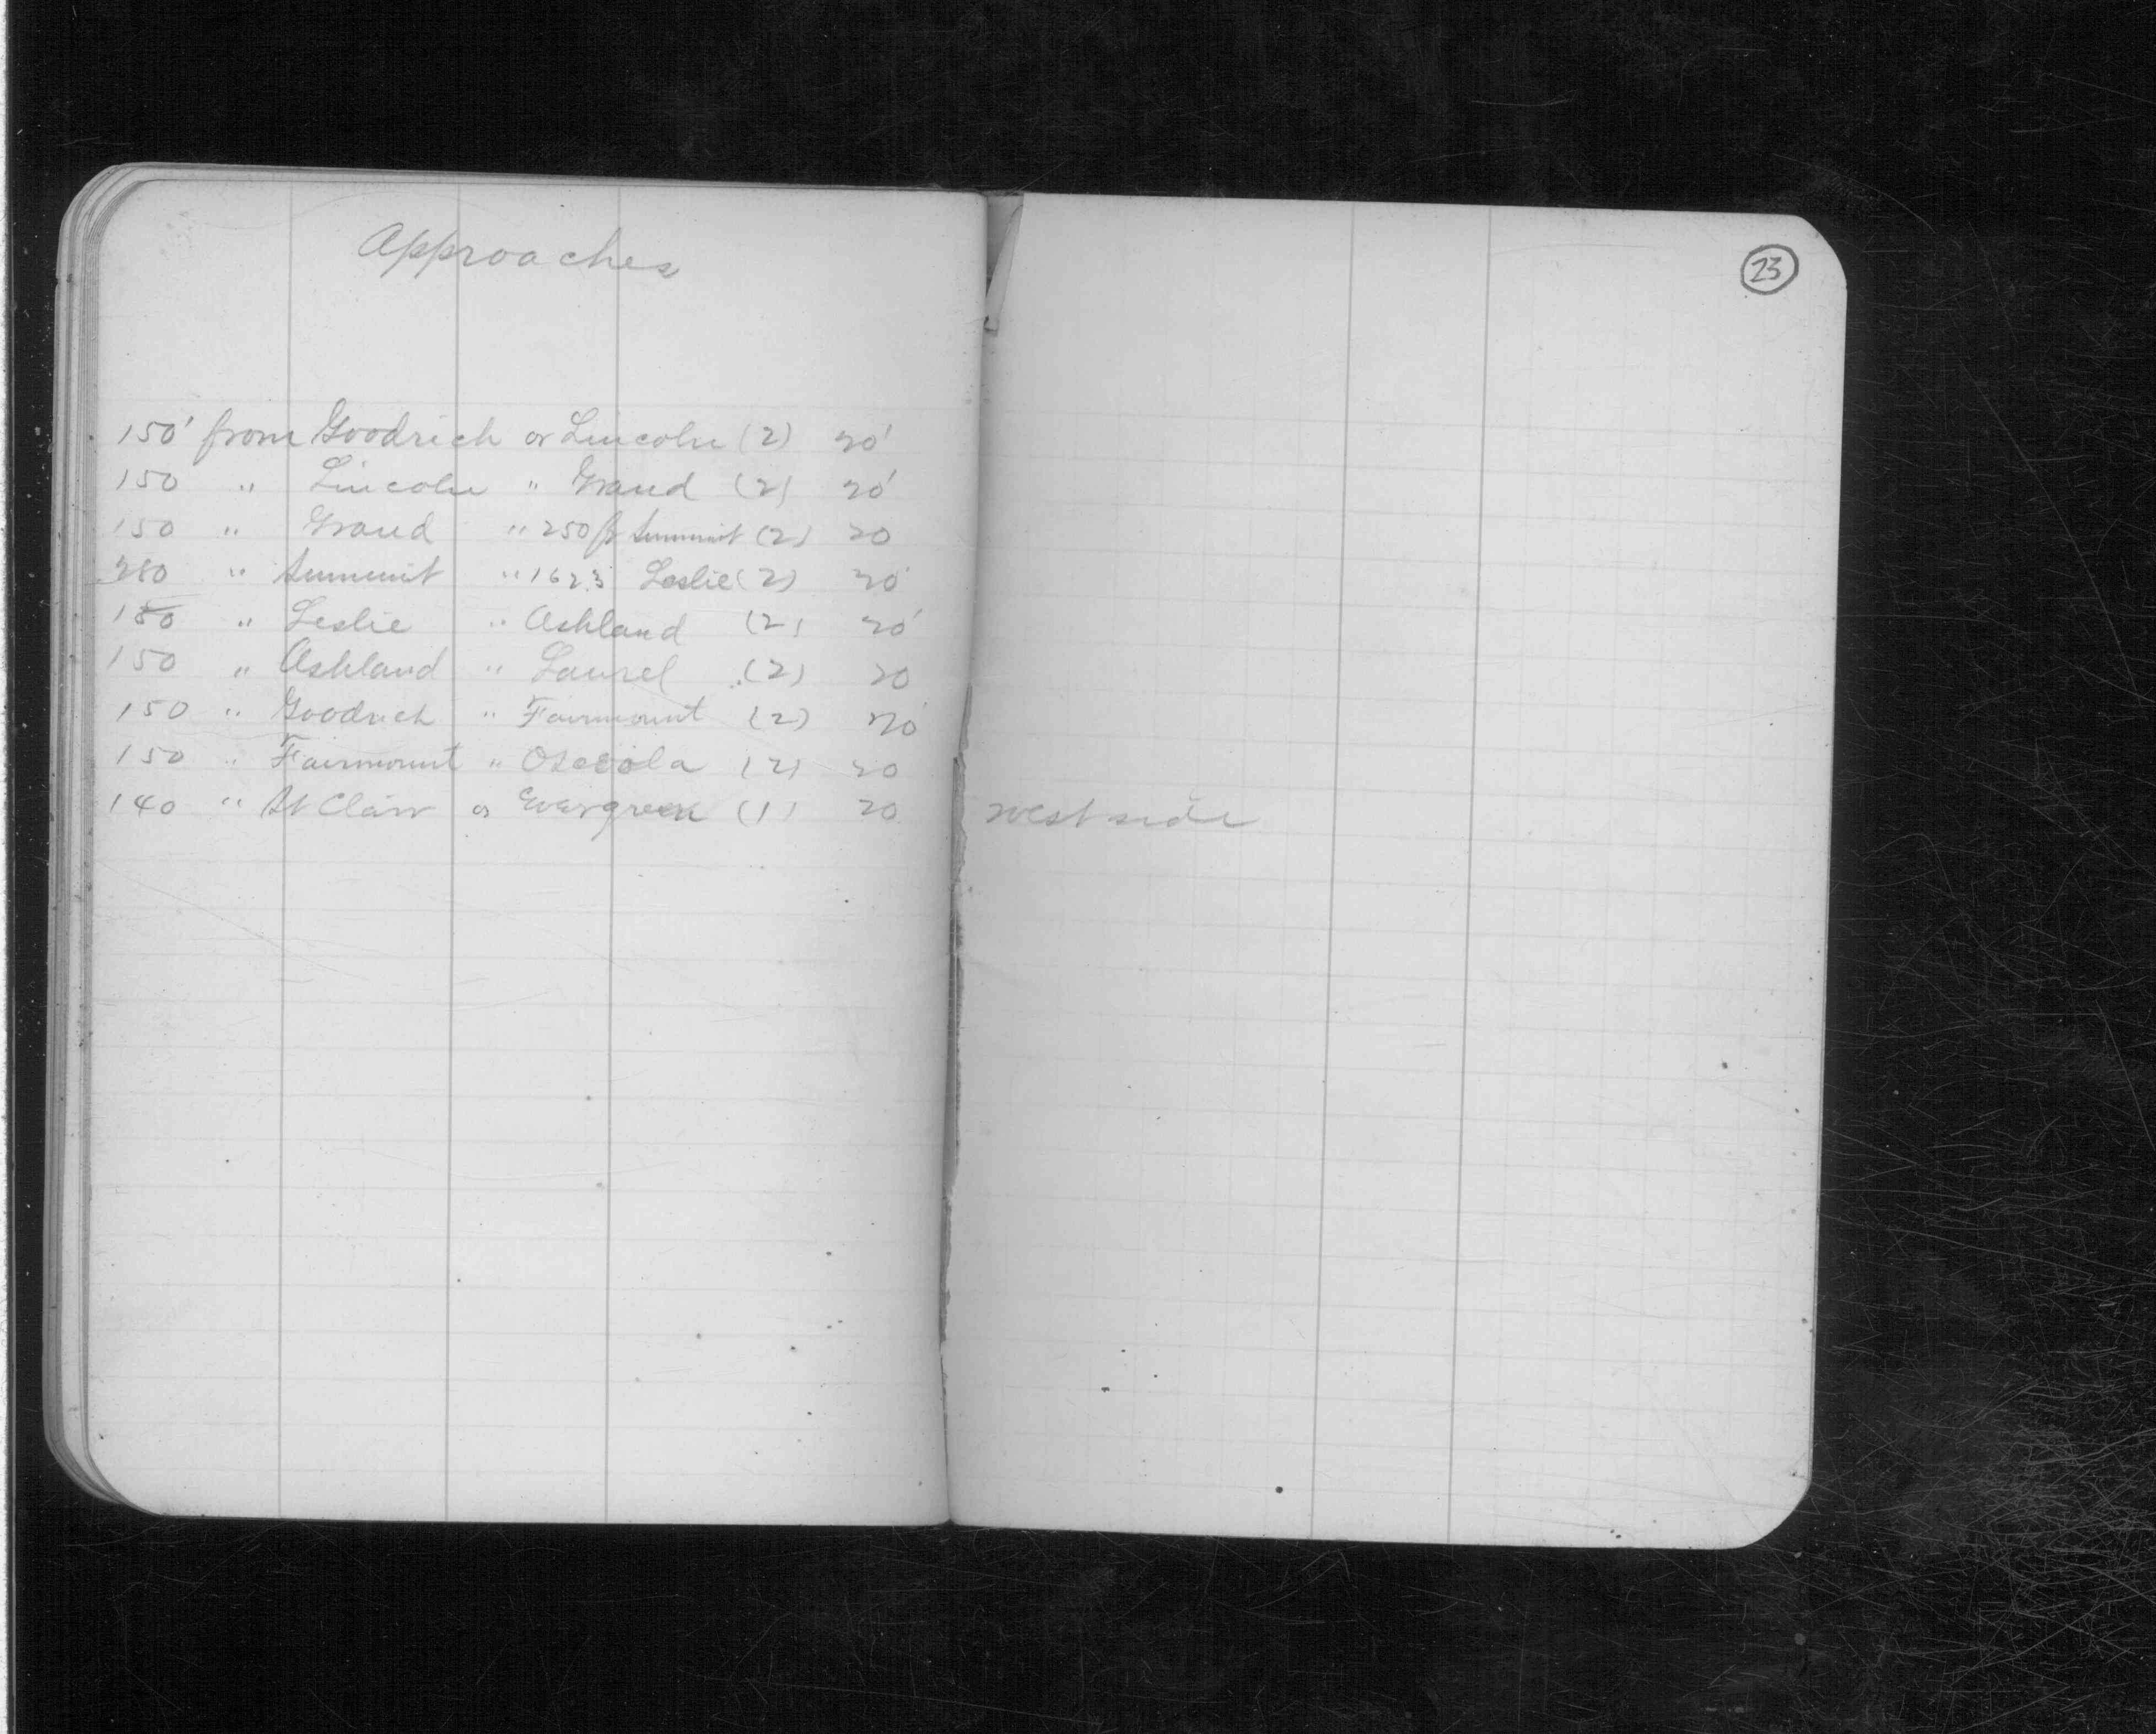 Approaches
150' from Goodrich or Lincoln (2) 20'
150 " Lincoln " Grand (2) 20'
150 " Grand " 250 fr Summit (2) 20
250 " Summit " 162.5 Leslie (2) 20'
150 " Leslie " Ashland (2) 20'
150 " Ashland " Laurel (2) 20
150 " Goodrich " Fairmount (2) 20'
150 " Fairmount " Osceola (2) 20
140 " St Clair or Evergreen (1) 20 west side
23